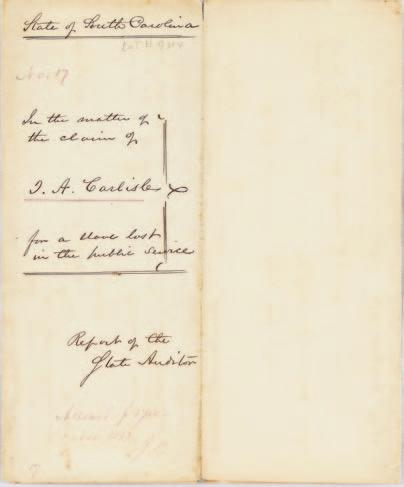 State of South Carolina
No. 17
In the matter of
the claim of
T. A. Carlisle
for a slave lost
in the public service
Report of the
State Auditor